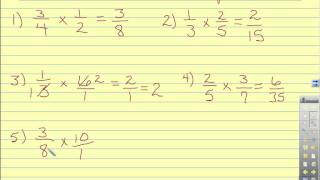 1) 3/4 x 1/2 = 3/8
2) 1/3 x 2/5 = 2/15
3) 1/13 x 16 2/1 = 2/1 = 2
4) 2/5 x 3/7 = 6/35
5) 3/8 x 10/1